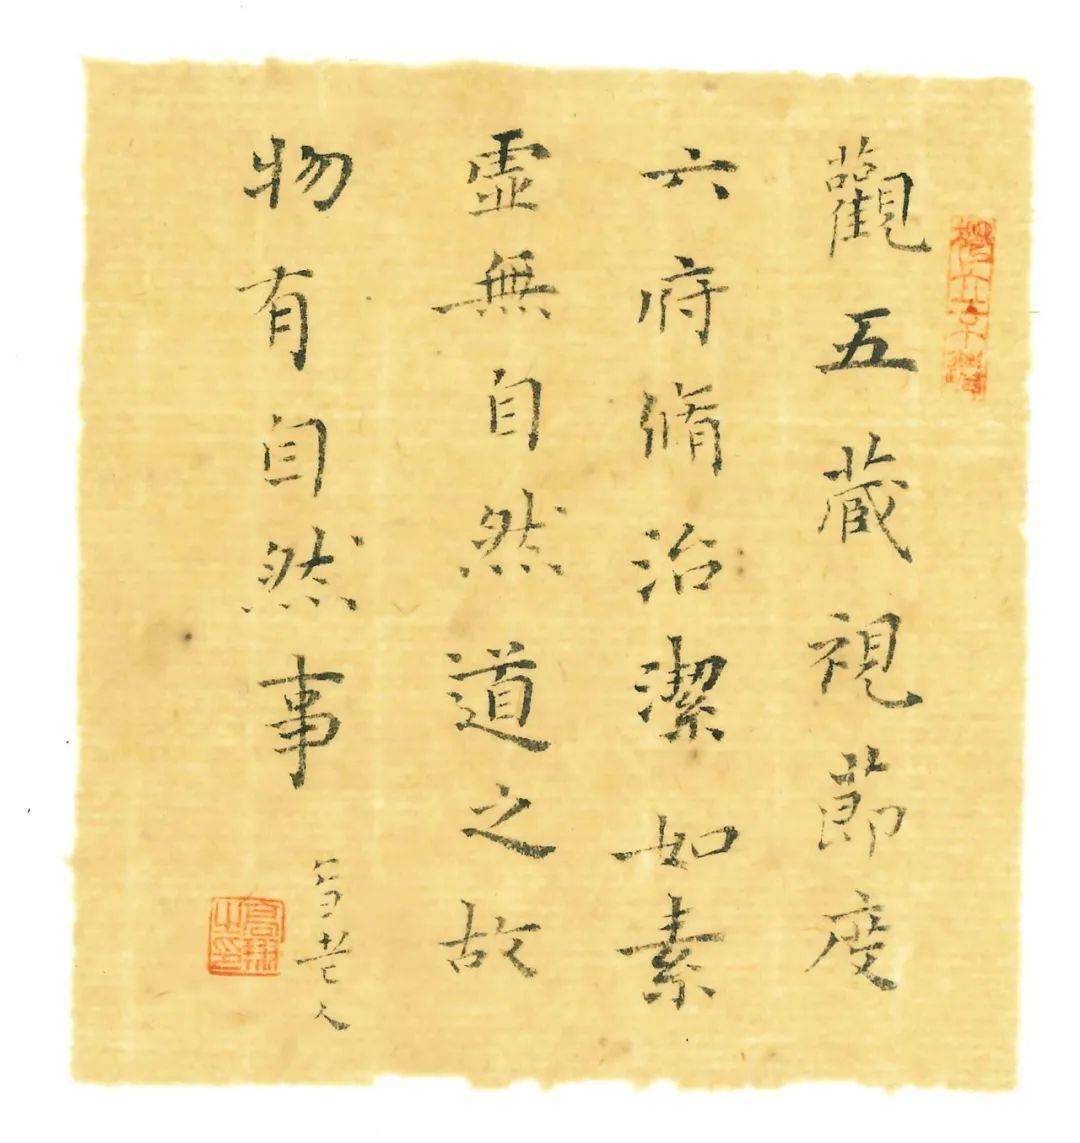 觀五藏視節度
六府脩治潔如素
虛無自然道之故
物有自然事